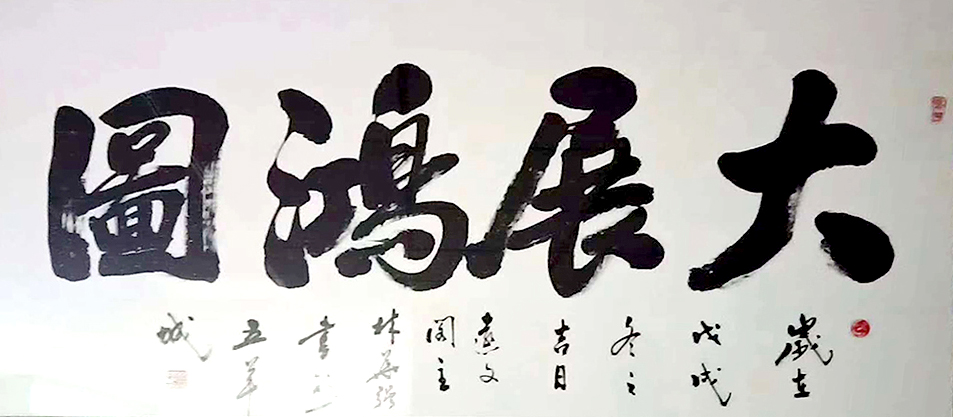 大展鴻圖
歲在
戊戌
冬之
吉日
文
閣主
林華强
書於
五羊
城